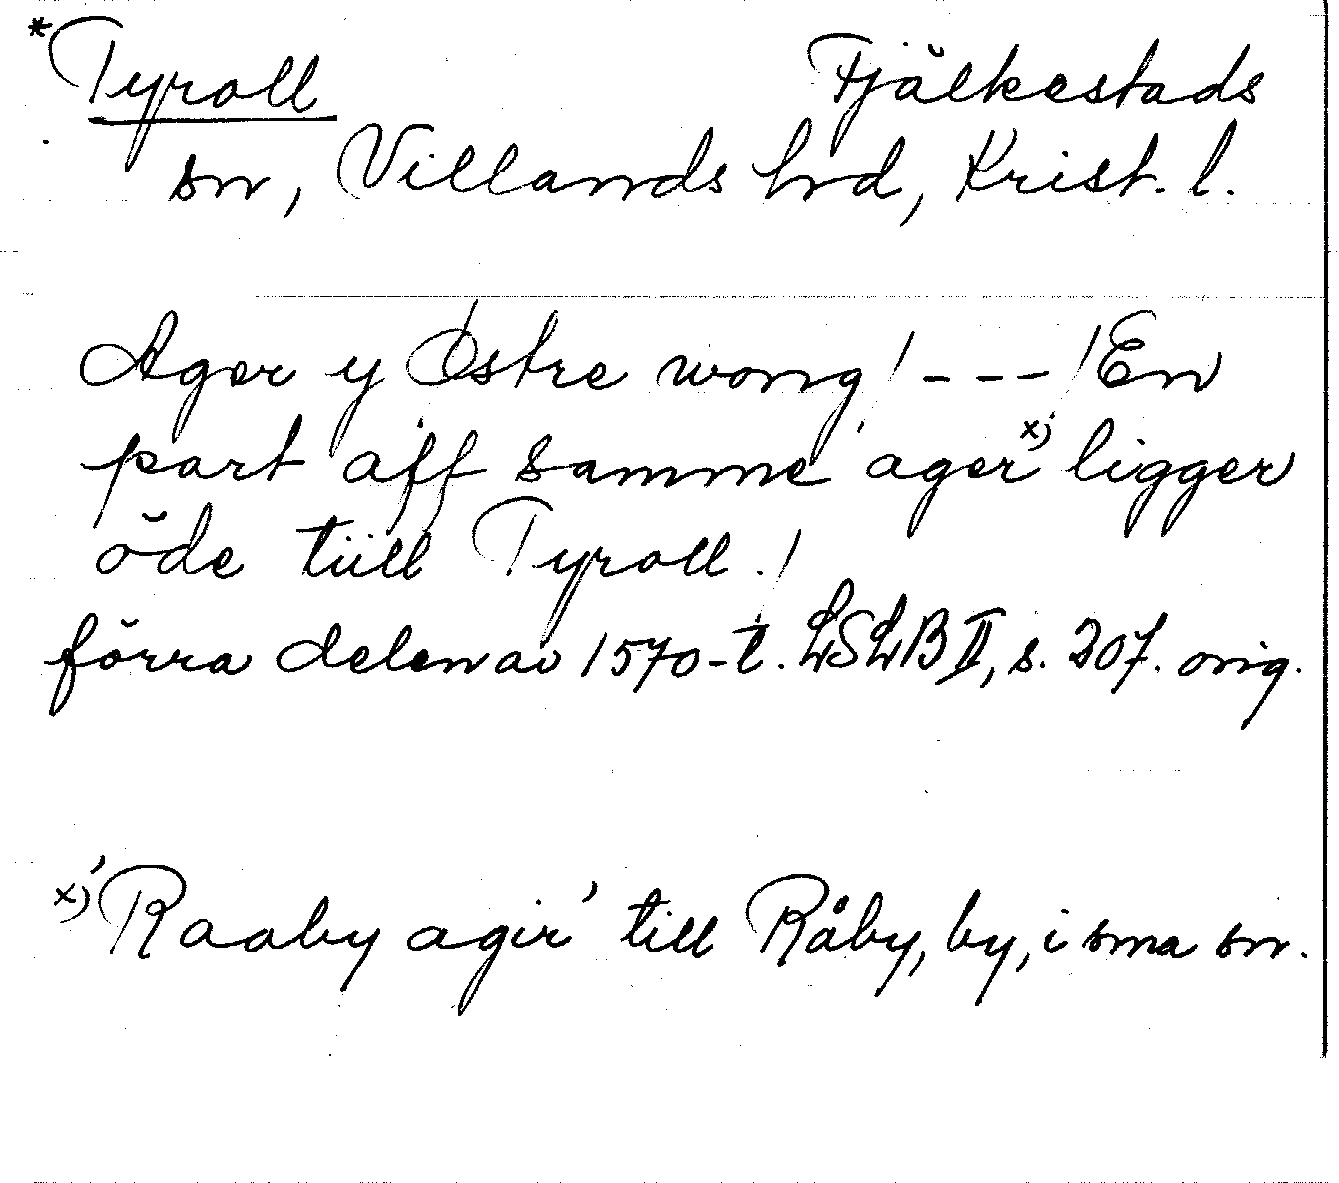 *Tyroll Fjälkestads
sn, Villands hrd, Krist. l.
Ager y Østre wong /---/ En
part aff samme ager x) ligger
öde tiill Tyroll./
förra delen av 1570-t. LSLB II, s. 207. orig.
x) 'Raaby agir' till Råby, by, i sma sn.